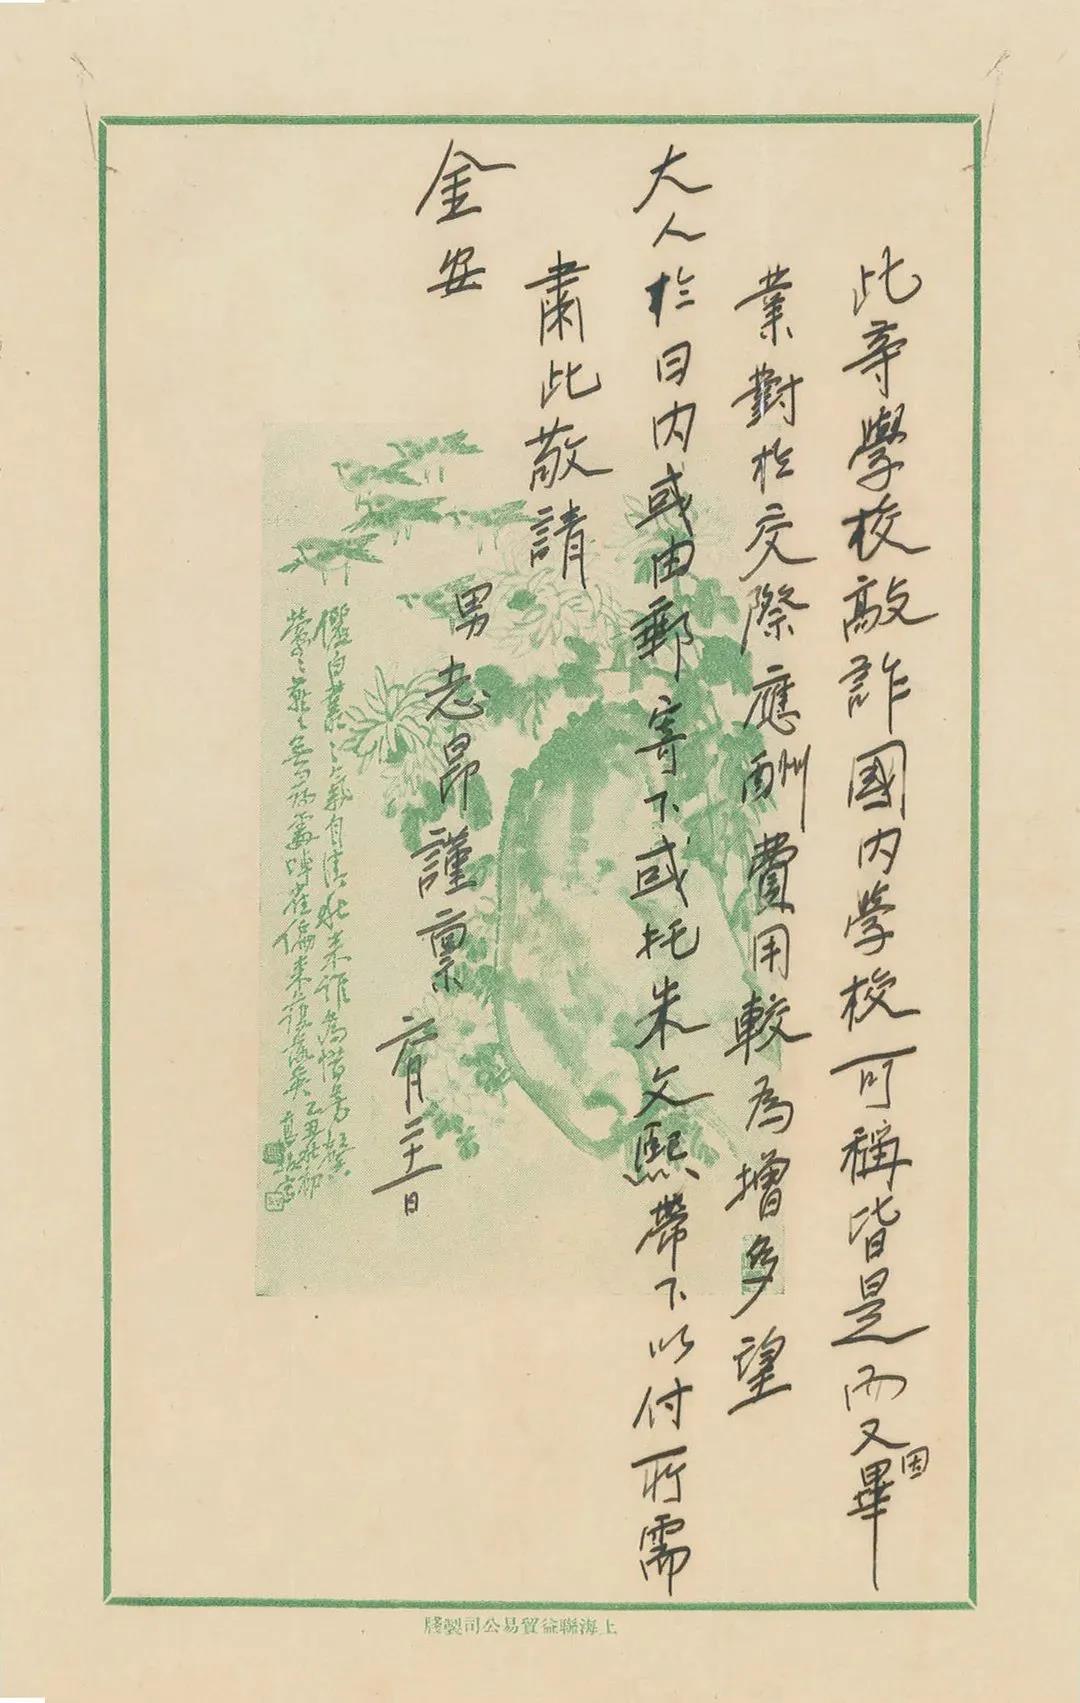 此等學校敲詐國内学校可稱皆是而又因畢
業對於交際應酬費用較為增多望
大人於日内或由郵寄下或托朱文熙帶下以付所需
肅此敬請
金安
男志昂謹禀 六月二十一日
上海聯益貿易公司製牋